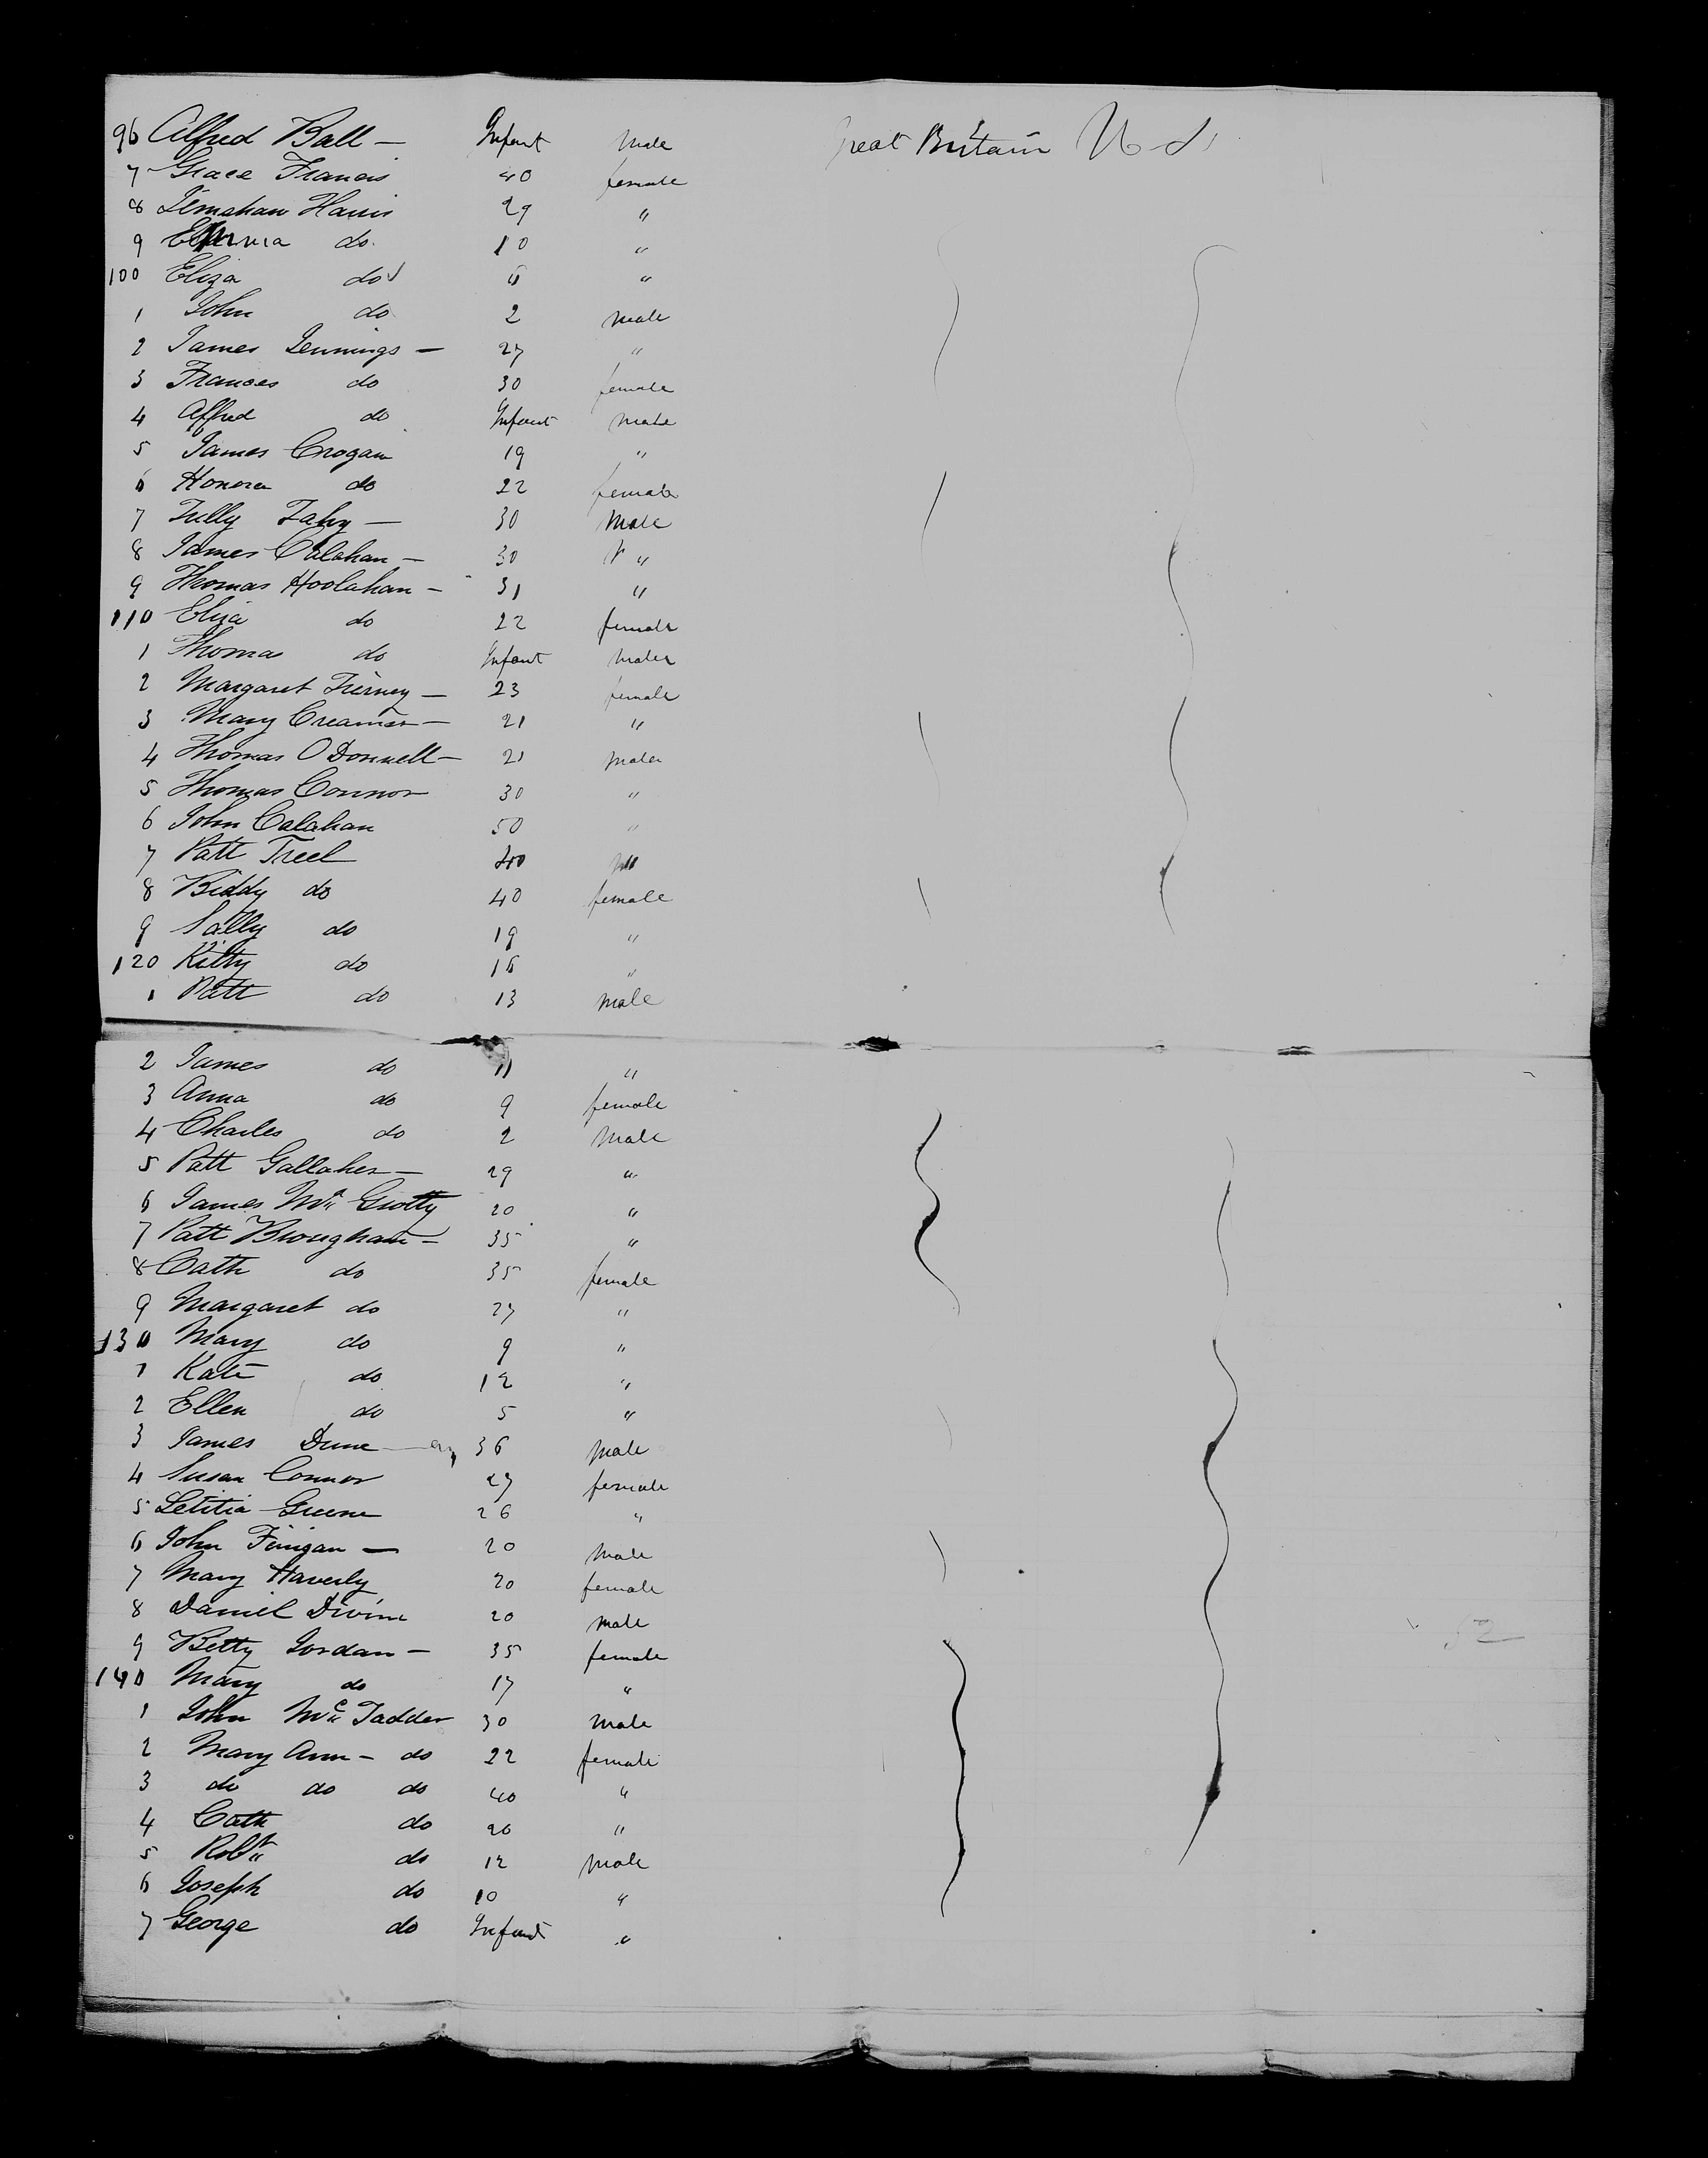 96 Alfred Ball — Infant Male Great Britain U S
7 Grace Francis 40 female
8 Jemahan Harris 29 "
9 do. 10 "
100 Eliza do 6 "
1 John do 2 male
2 James Jennings — 27 "
3 Frances do 30 female
4 Alfred do Infant Male
5 James Crogan 19 "
6 Honora do 22 female
7 Tully Fahy — 30 Male
8 James Calahan — 30 "
9 Thomas Hoolahan — 31 "
110 Eliza do 22 female
1 Thomas do Infant Male
2 Margaret Tierney — 23 female
3 Mary Creamer — 21 "
4 Thomas O Donnell — 21 male
5 Thomas Connor 30 "
6 John Calahan 50 "
7 Patt Treel 40 "
8 Biddy do 40 female
9 Sally do 19 "
120 Kitty do 16 "
1 Patt do 13 male
2 James do 11 "
3 Anna do 9 female
4 Charles do 2 Male
5 Patt Gallaher — 29 "
6 James Mc Grotty 20 "
7 Patt Brougham — 35 "
8 Cath do 35 female
9 Margaret do 27 "
130 Mary do 9 "
1 Kate do 12 "
2 Ellen do 5 "
3 James Dune 36 Male
4 Susan Connor 27 female
5 Letitia Greene 26 "
6 John Finigan — 20 Male
7 Mary Haverly 20 female
8 Daniel Divine 20 male
9 Betty Jordan — 35 female
140 Mary do 17 "
1 John Mc Fadder 30 Male
2 Mary Ann — do 22 female
3 do do do 40 "
4 Cath do 20 "
5 Robt do 12 Male
6 Joseph do 10 "
7 George do Infant "
52